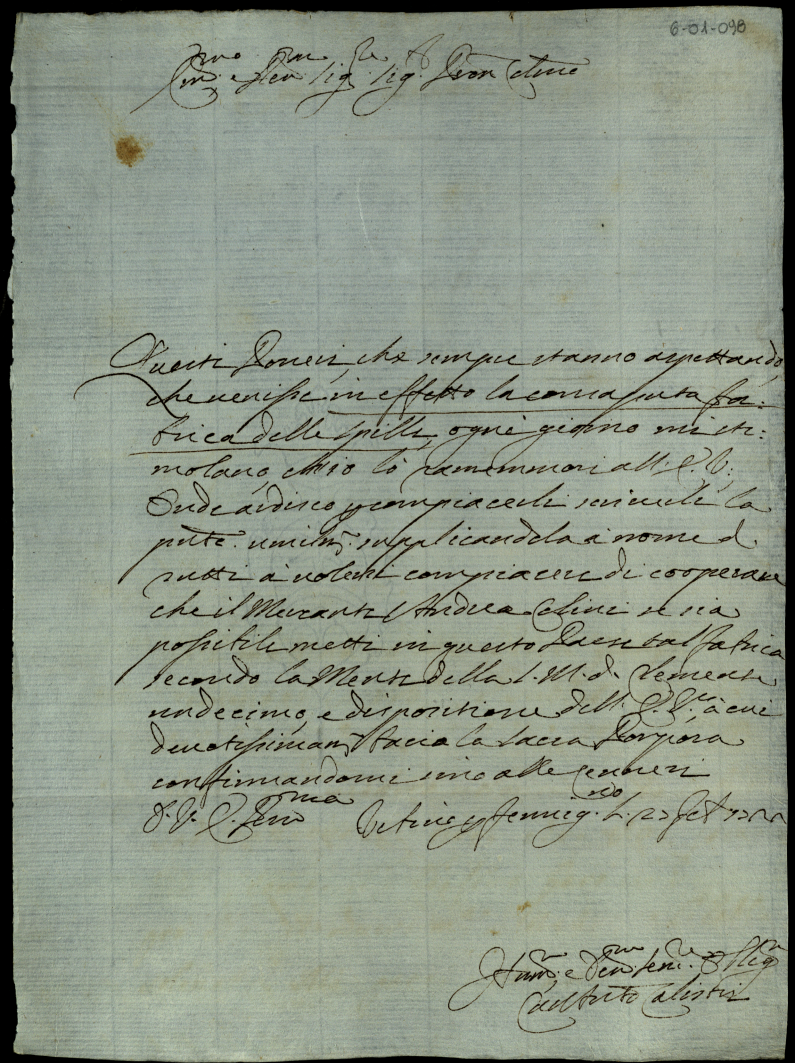 6-01-098
Em.mo e Rev.mo Sig.re Sig.r Pron Col.mo
Questi Poveri, che sempre stanno aspettando,
che venisse in effetto la comasuta fa:
brica delle spille, ogni giorno mi sti:
molano, ch'io lo rammemori all' E. V.
Onde ardisco p compiacerli scriverli la
pnte. umilm. supplicandola à nome d
tutti à volersi compiacere di cooperare
che il Mercante Andrea Celini se sia
possibile metti in questo Paese tal fabrica
secondo la Mente della S. M. d. Clemente
undecimo, e dispositione dell' E. V. à cui
devotissimam bacio la Sacra Porpora
confirmandomi sino alle ceneri
D. V. E. Rev.ma
Hum. e Dev.mo Ser.re Oblig.